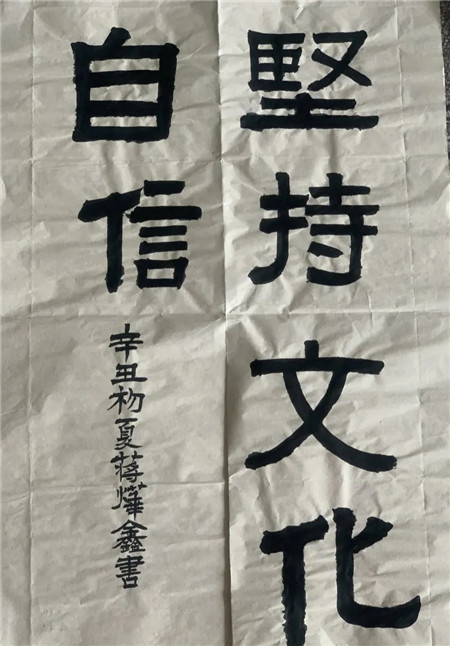 堅持文化
自信
辛丑初夏蒋燁鑫書